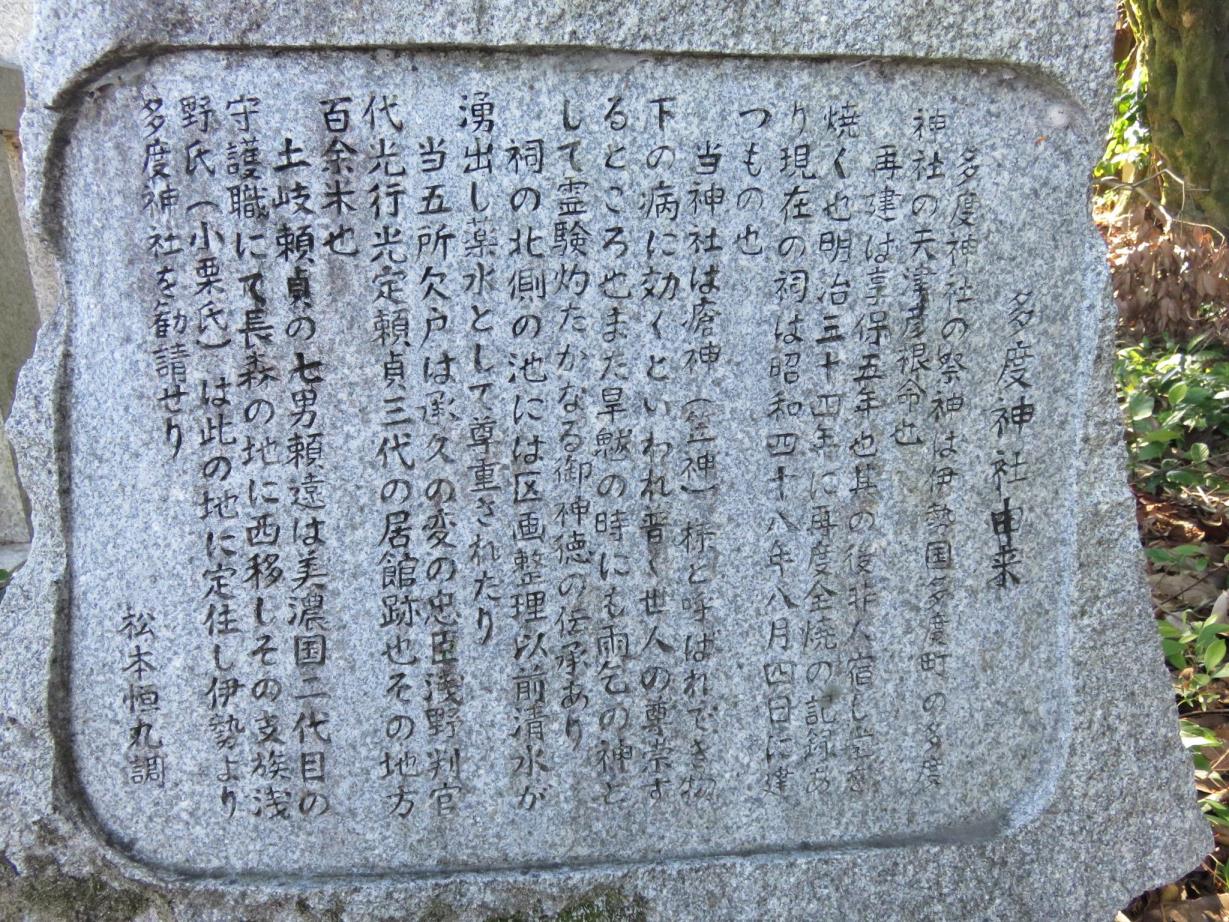 多度神社由来
多度神社の祭神は伊勢国多度町の多度
神社の天津彦根命也
再建は享保五年也其の後非人宿し堂を
焼く也明治三十四年に再度全焼の記録あ
り現在の祠は昭和四十八年八月四日に建
つもの也
当神社は瘡神様と呼ばれでき物
下の病に効くといわれ普く世人の尊崇す
るところ也また旱魃の時にも雨乞の神と
して霊験灼たかなる御神徳の伝承あり
祠の北側の池には区画整理以前清水が
湧出し薬水として尊重されたり
当五所欠戸は承久の変の忠臣浅野判官
代光行光定頼貞三代の居館跡也その地方
百余米也
土岐頼貞の七男頼遠は美濃国二代目の
守護職にて長森の地に西移しその支族浅
野氏（小栗氏）は此の地に定住し伊勢より
多度神社を勧請せり
松本恒丸調